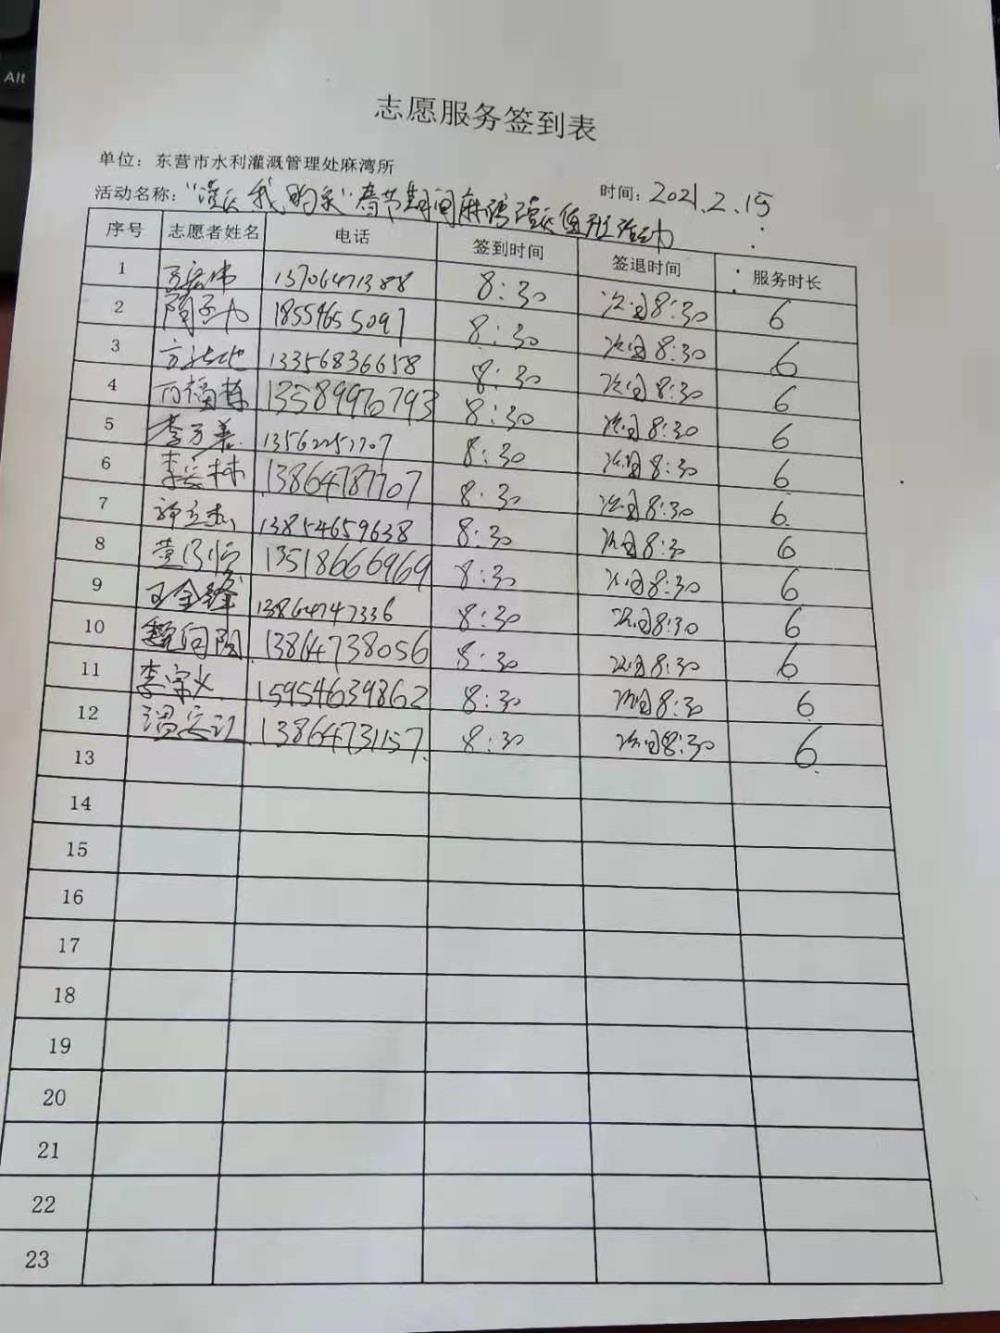 Alt
志愿服务签到表
单位：东营市水利灌溉管理处麻湾所
活动名称： 春节期间麻湾灌区 活动 时间：2021.2.15
序号 志愿者姓名 电话 签到时间 签退时间 服务时长
1 13706471388 8:30 次日8:30 6
2 18554655097 8:30 次日8:30 6
3 13356836658 8:30 次日8:30 6
4 13589976793 8:30 次日8:30 6
5 李万善 13562257707 8:30 次日8:30 6
6 李安林 13864787707 8:30 次日8:30 6
7 13854659638 8:30 次日8:30 6
8 13518666969 8:30 次日8:30 6
9 王金锋 13864747336 8:30 次日8:30 6
10 魏向阳 13864738056 8:30 次日8:30 6
11 李宗义 15954639862 8:30 次日8:30 6
12 13864731157 8:30 次日8:30 6
13
14
15
16
17
18
19
20
21
22
23